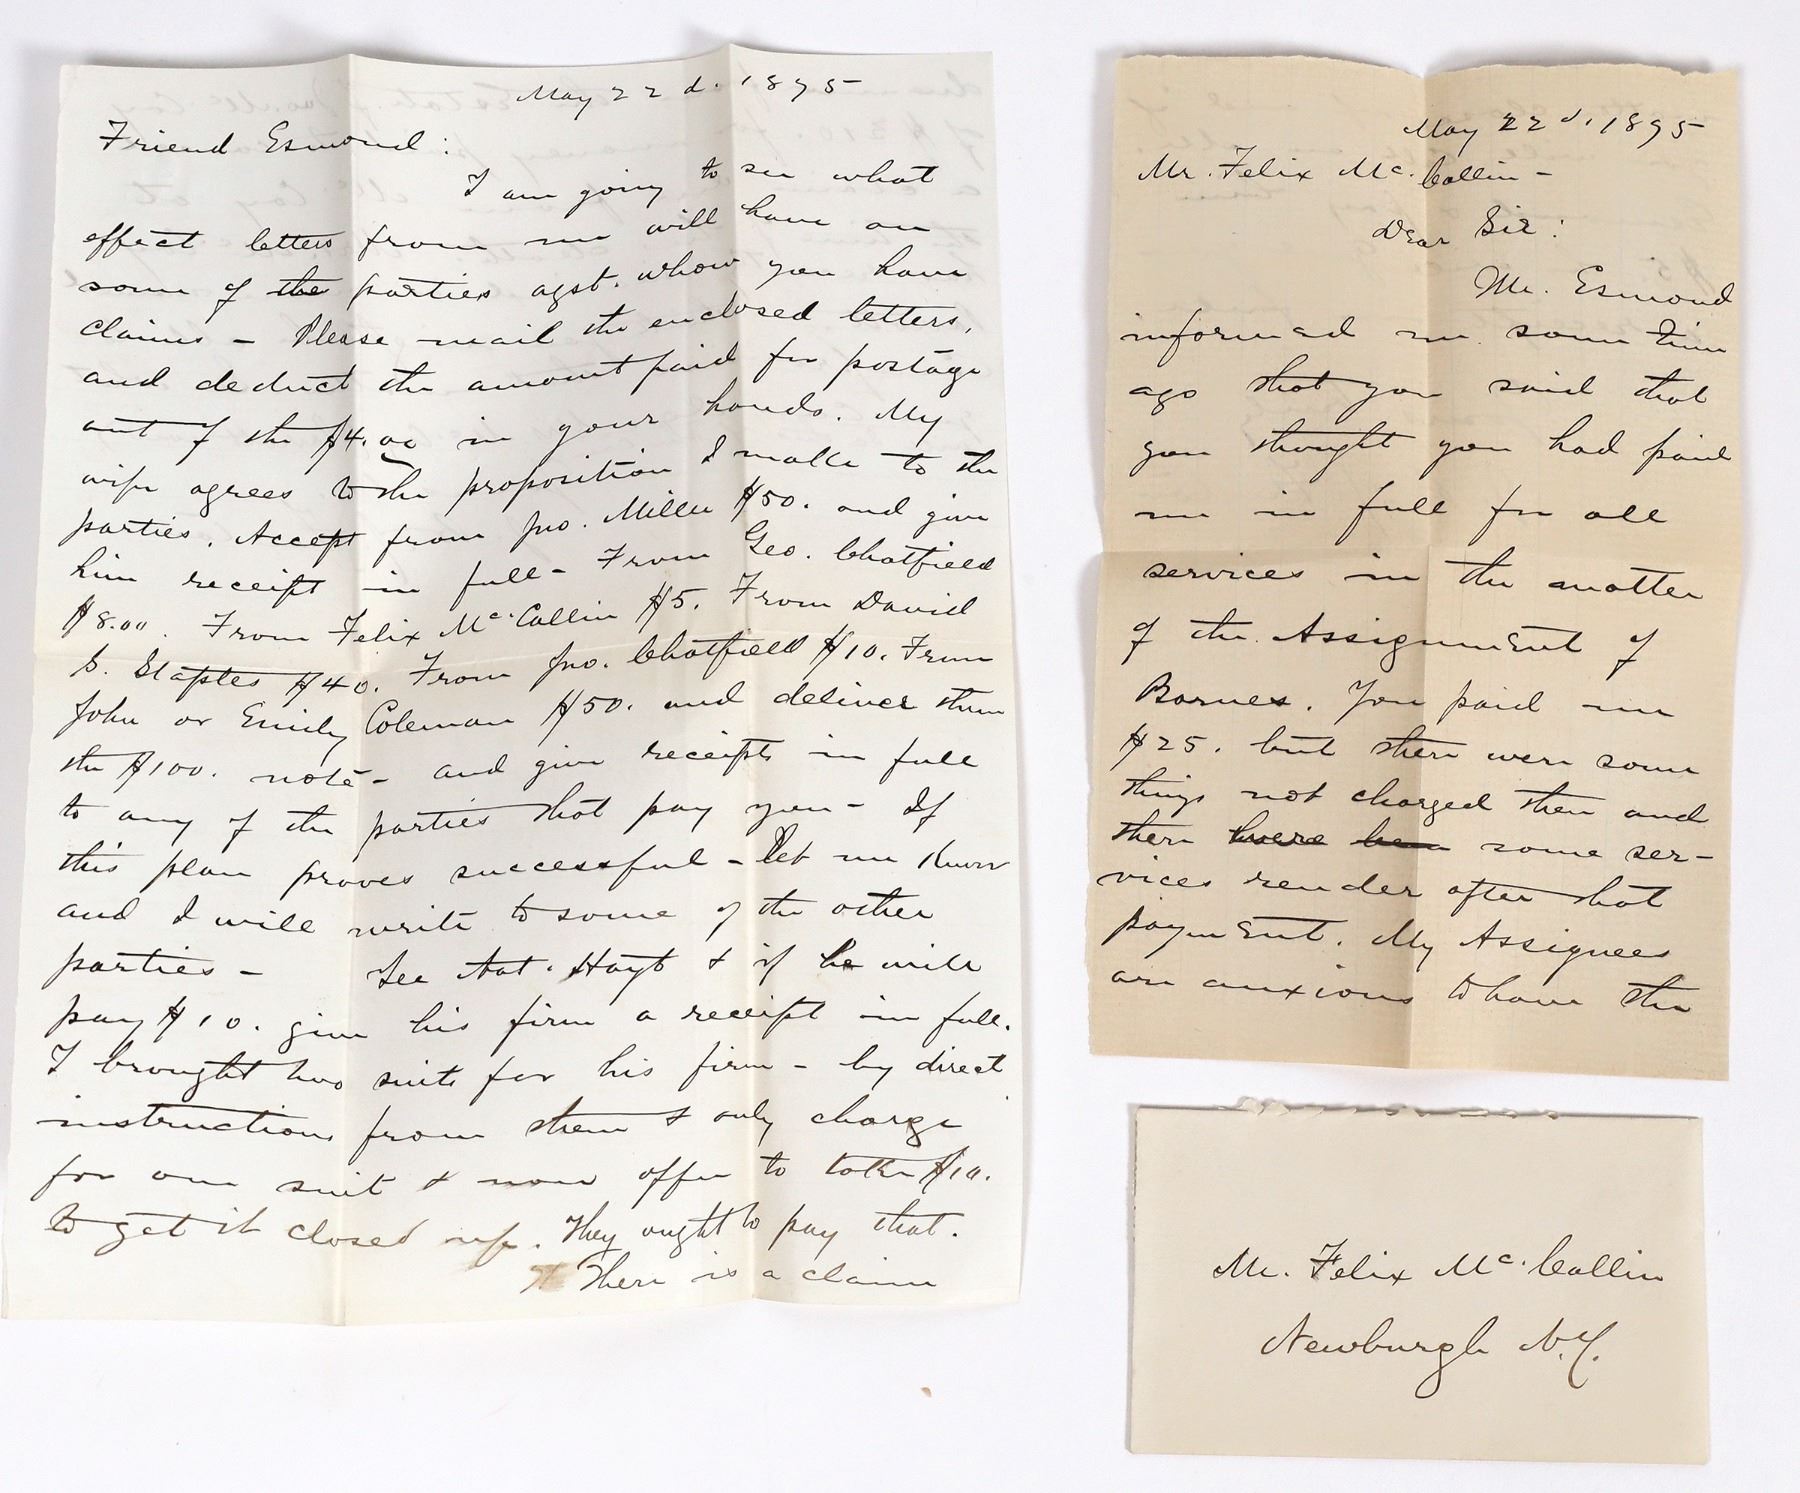 May 22d. 1895
Friend Esmond:
I am going to see what
effect letters from me will have on
some of the parties agst. whom you have
claims - Please mail the enclosed letters,
and deduct the amount paid for postage
out of the $4.00 in your hands. My
wife agrees to the proposition I make to the
parties. Accept from Jno. Miller $50. and give
him receipt in full - From Geo. Chatfield
$8.00. From Felix McCallin $5. From David
S. Staples $40. From Jno. Chatfield $10. From
John or Emily Coleman $50. and deliver them
the $100. note - and give receipts in full
to any of the parties that pay you - If
this plan proves successful - let me know
and I will write to some of the other
parties - See Nat. Hoyt & if he will
pay $10. give his firm a receipt in full.
I brought two suits for his firm - by direct
instructions from them & only charge
for one suit & now offer to take $10.
to get it closed up. They ought to pay that.
There is a claim
May 22d. 1895
Mr. Felix Mc. Callin -
Dear Sir:
Mr. Esmond
informed me some time
ago that you said that
you thought you had paid
me in full for all
services in the matter
of the Assignment of
Barnes. You paid me
$25. but there were some
things not charged then and
there were been some ser-
vices render after that
payment. My Assignees
are anxious to have the
Mr. Felix Mc. Callin
Newburgh N.Y.